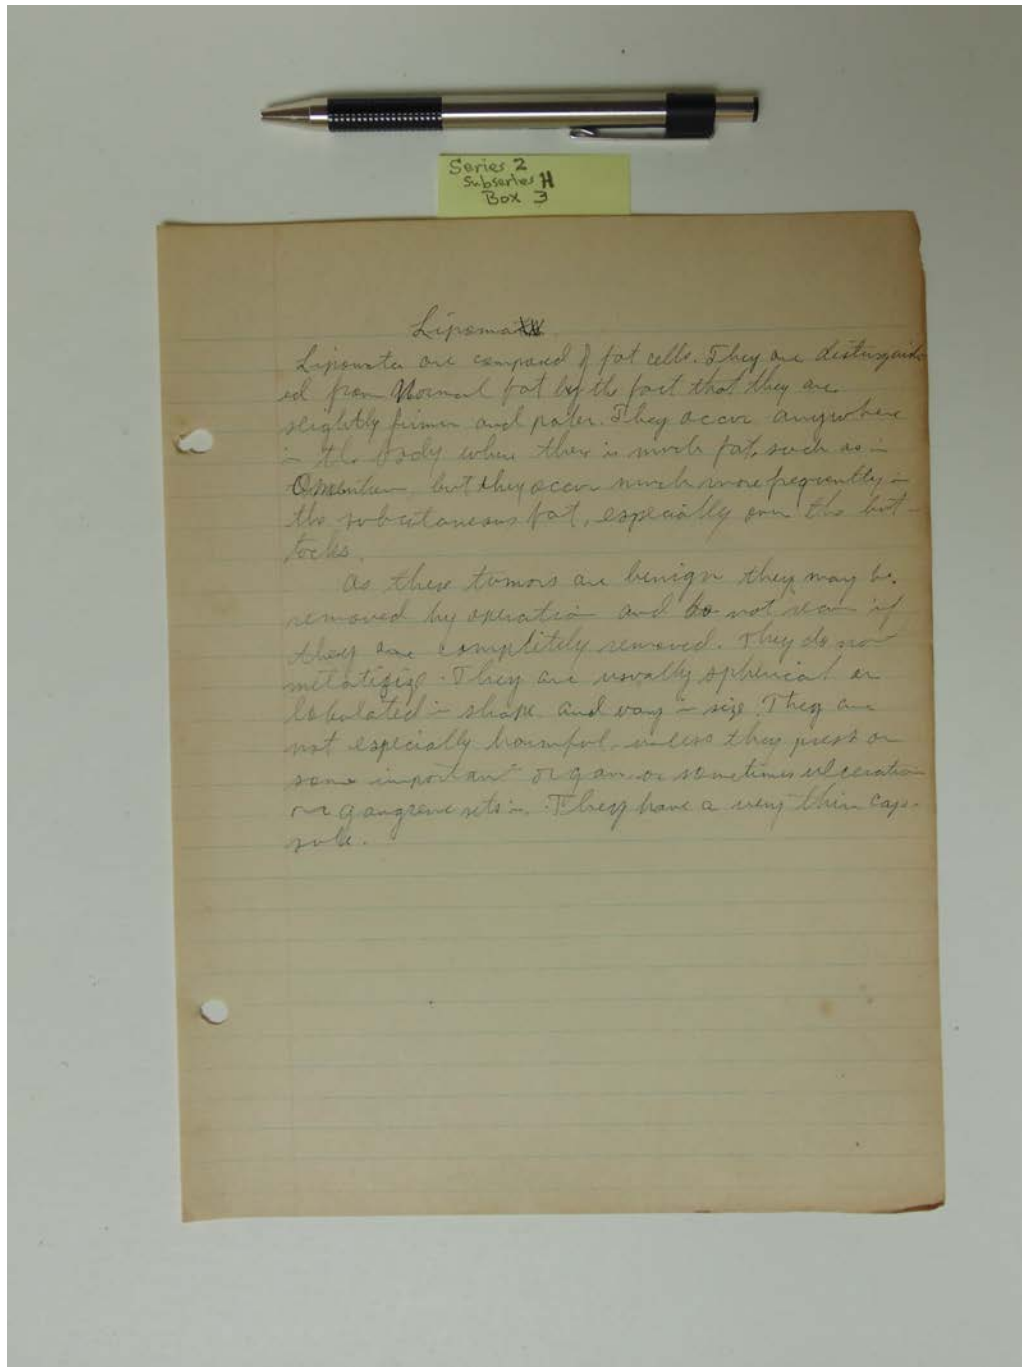 Series 2
Subseries H
Box 3
Lipoma
Lipomata are composed of fat cells. They are distinguish
ed from Normal fat by the fact that they are
slightly firmer and paler. They occur anywhere
in the body where there is much fat, such as in
Omentum but they occur much more frequently in
the subcutaneous fat, especially over the but-
tocks.
As these tumors are benign they may be
removed by operation and do not recur if
they are completely removed. They do not
metatisize. They are usually spherical or
lobulated in shape and vary in size. They are
not especially harmful unless they press on
some important organ or sometimes ulceration
or gangrene sets in. They have a very thin cap-
sule.